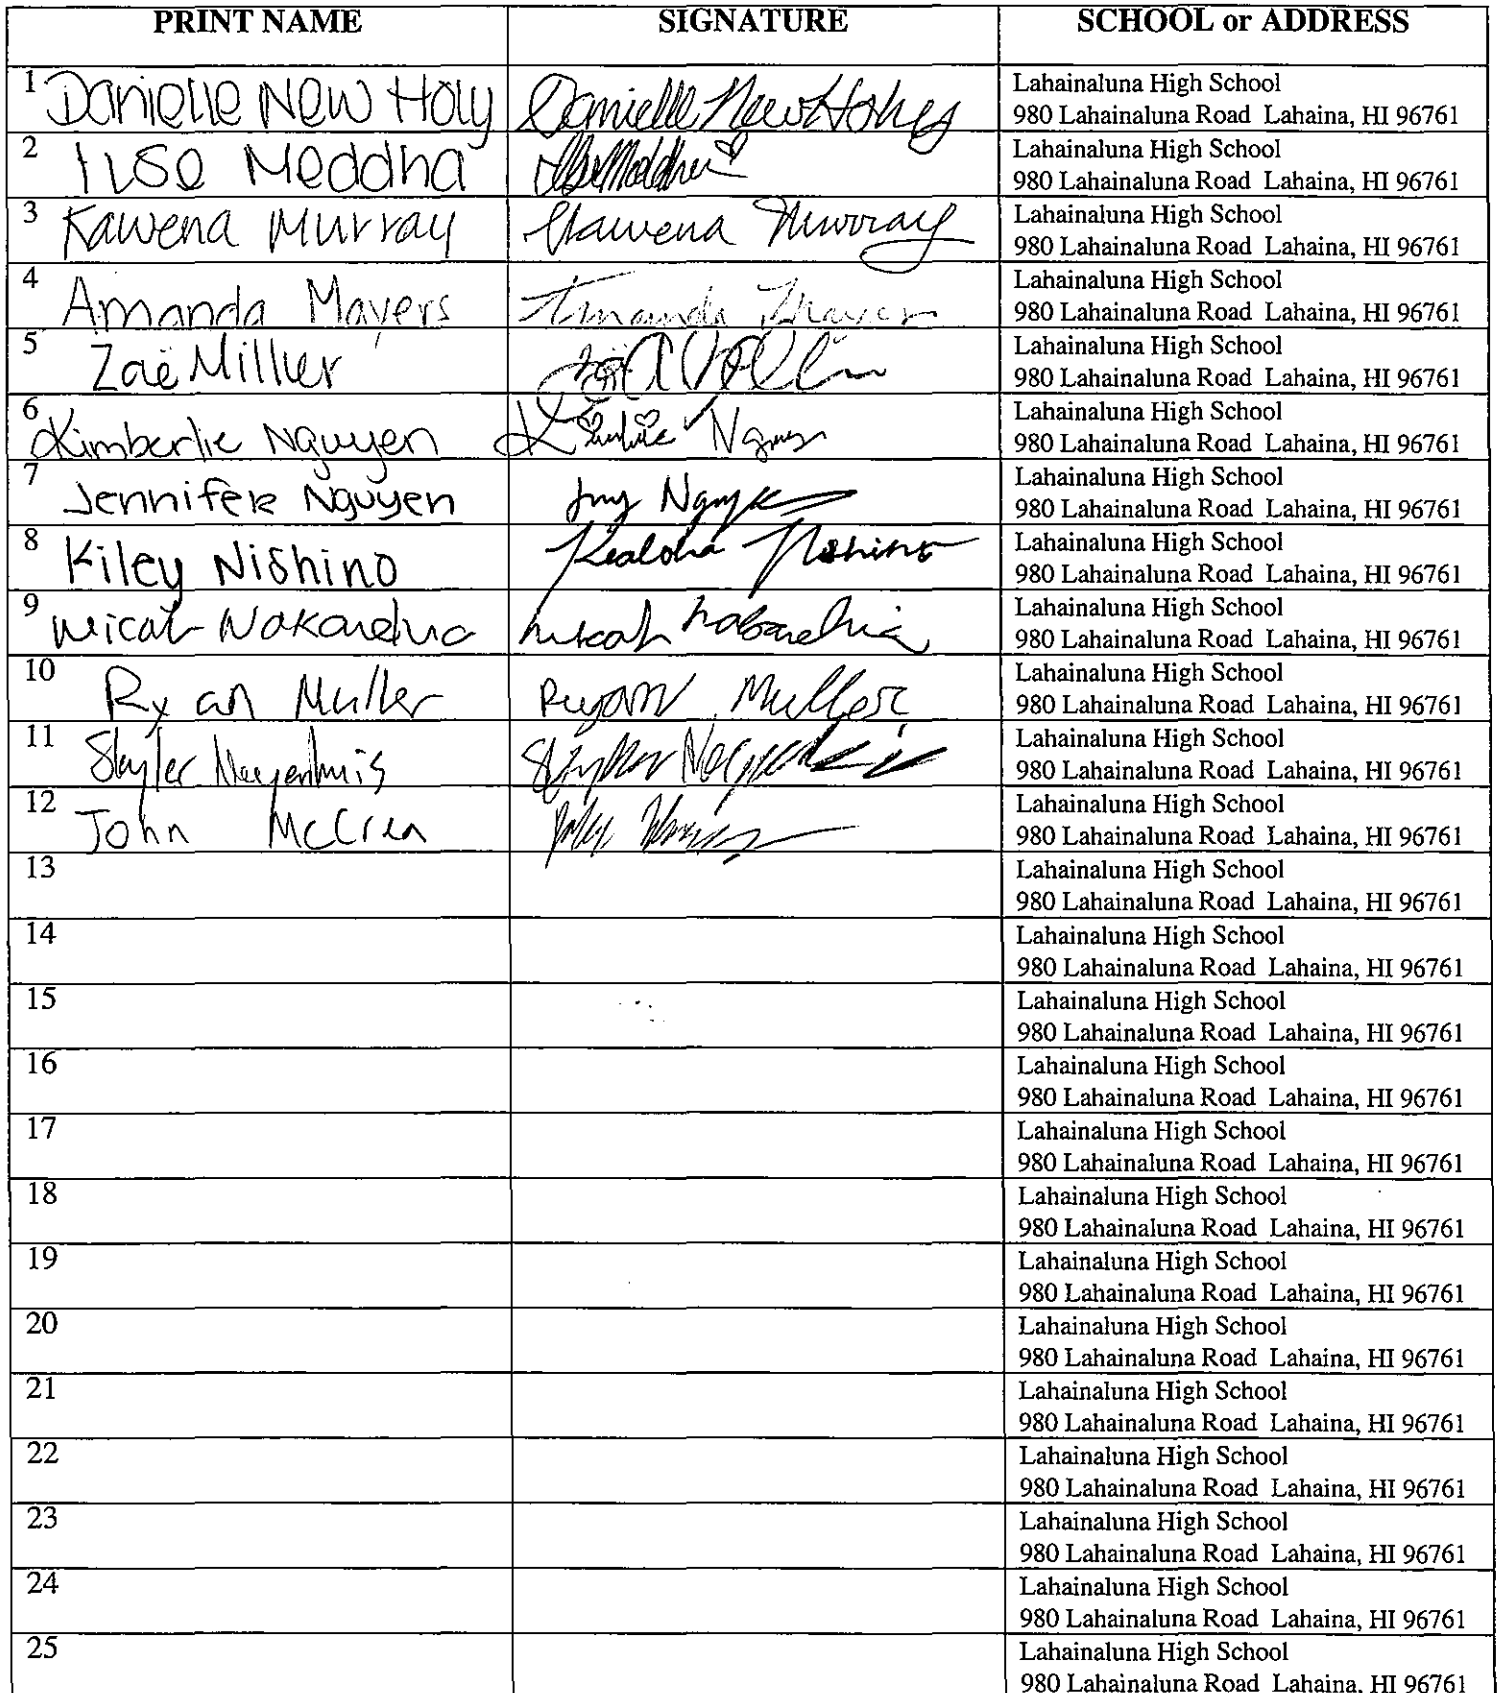 PRINT NAME SIGNATURE SCHOOL or ADDRESS
1 Danielle New Holy Danielle New Holy Lahainaluna High School
980 Lahainaluna Road Lahaina, HI 96761
2 Ilse Meddha Lahainaluna High School
980 Lahainaluna Road Lahaina, HI 96761
3 Kawena Murray Kawena Murray Lahainaluna High School
980 Lahainaluna Road Lahaina, HI 96761
4 Amanda Mayers Amanda Lahainaluna High School
980 Lahainaluna Road Lahaina, HI 96761
5 Zoë Miller Lahainaluna High School
980 Lahainaluna Road Lahaina, HI 96761
6 Kimberlie Nguyen Lahainaluna High School
980 Lahainaluna Road Lahaina, HI 96761
7 Jennifer Nguyen Lahainaluna High School
980 Lahainaluna Road Lahaina, HI 96761
8 Kiley Nishino Kealoha Nishino Lahainaluna High School
980 Lahainaluna Road Lahaina, HI 96761
9 Micah Micah Lahainaluna High School
980 Lahainaluna Road Lahaina, HI 96761
10 Ryan Muller Ryan Muller Lahainaluna High School
980 Lahainaluna Road Lahaina, HI 96761
11 Skyler Skyler Lahainaluna High School
980 Lahainaluna Road Lahaina, HI 96761
12 John McCrea Lahainaluna High School
980 Lahainaluna Road Lahaina, HI 96761
13 Lahainaluna High School
980 Lahainaluna Road Lahaina, HI 96761
14 Lahainaluna High School
980 Lahainaluna Road Lahaina, HI 96761
15 Lahainaluna High School
980 Lahainaluna Road Lahaina, HI 96761
16 Lahainaluna High School
980 Lahainaluna Road Lahaina, HI 96761
17 Lahainaluna High School
980 Lahainaluna Road Lahaina, HI 96761
18 Lahainaluna High School
980 Lahainaluna Road Lahaina, HI 96761
19 Lahainaluna High School
980 Lahainaluna Road Lahaina, HI 96761
20 Lahainaluna High School
980 Lahainaluna Road Lahaina, HI 96761
21 Lahainaluna High School
980 Lahainaluna Road Lahaina, HI 96761
22 Lahainaluna High School
980 Lahainaluna Road Lahaina, HI 96761
23 Lahainaluna High School
980 Lahainaluna Road Lahaina, HI 96761
24 Lahainaluna High School
980 Lahainaluna Road Lahaina, HI 96761
25 Lahainaluna High School
980 Lahainaluna Road Lahaina, HI 96761